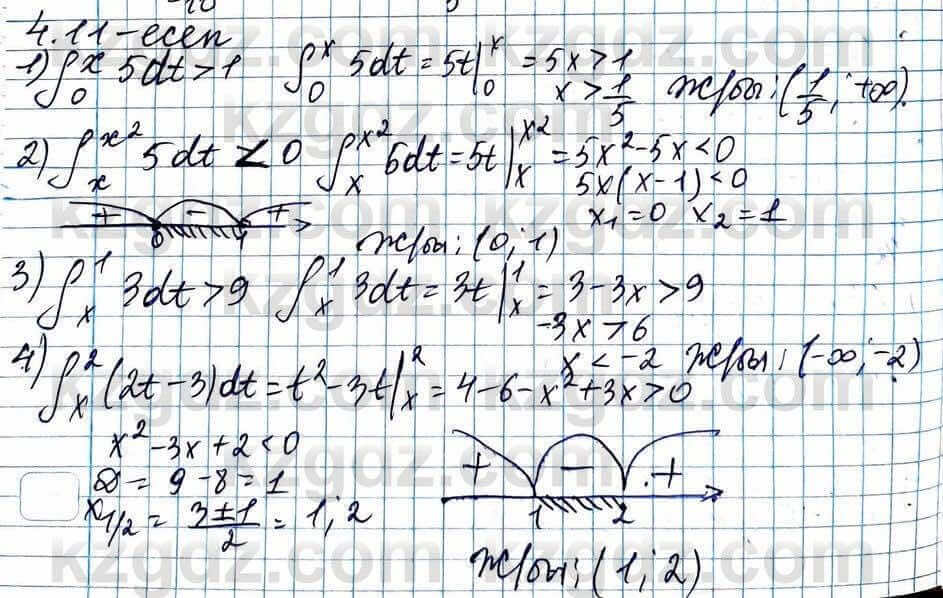 4.11-есеп
1) ∫₀ˣ 5dt > 1   ∫₀ˣ 5dt = 5t|₀ˣ = 5x > 1
x > 1/5   Ж/бы: (1/5; +∞).
2) ∫ₓ^(x²) 5dt < 0   ∫ₓ^(x²) 5dt = 5t|ₓ^(x²) = 5x² - 5x < 0
5x(x-1) < 0
x₁ = 0   x₂ = 1
+ - +
0 1
Ж/бы: (0; 1)
3) ∫ₓ¹ 3dt > 9   ∫ₓ¹ 3dt = 3t|ₓ¹ = 3 - 3x > 9
-3x > 6
x < -2   Ж/бы: (-∞; -2)
4) ∫ₓ² (2t-3)dt = t² - 3t|ₓ² = 4 - 6 - x² + 3x > 0
x² - 3x + 2 < 0
D = 9 - 8 = 1
x₁/₂ = (3±1)/2 = 1; 2
+ - +
1 2
Ж/бы: (1; 2)
kzgdz.com